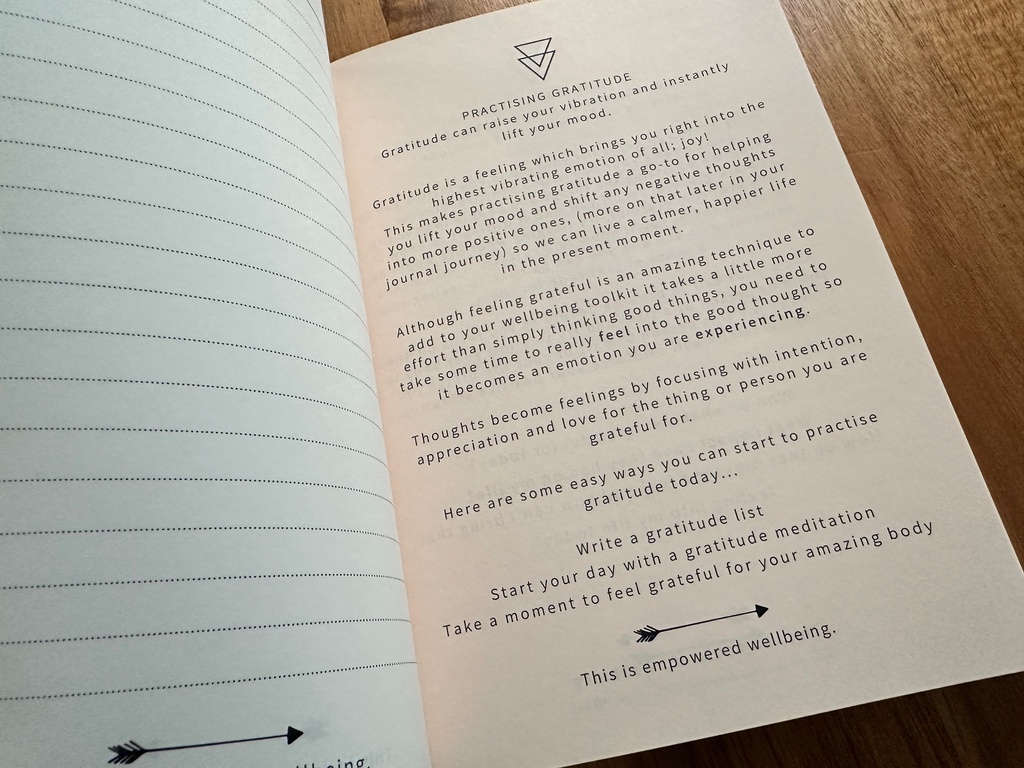 PRACTISING GRATITUDE
Gratitude can raise your vibration and instantly
lift your mood.
Gratitude is a feeling which brings you right into the
highest vibrating emotion of all; joy!
This makes practising gratitude a go-to for helping
you lift your mood and shift any negative thoughts
into more positive ones, (more on that later in your
journal journey) so we can live a calmer, happier life
in the present moment.
Although feeling grateful is an amazing technique to
add to your wellbeing toolkit it takes a little more
effort than simply thinking good things, you need to
take some time to really feel into the good thought so
it becomes an emotion you are experiencing.
Thoughts become feelings by focusing with intention,
appreciation and love for the thing or person you are
grateful for.
Here are some easy ways you can start to practise
gratitude today...
Write a gratitude list
Start your day with a gratitude meditation
Take a moment to feel grateful for your amazing body
This is empowered wellbeing.